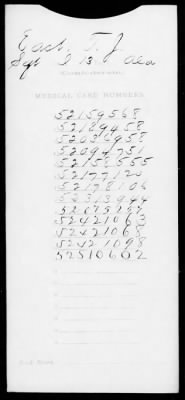 East, T. J.
Sgt I 13 Ala
(Confederate.)
MEDICAL CARD NUMBERS.
52159568
52189458
52094751
52158555
52177120
52178106
52313944
52421063
52421068
52421098
52510602